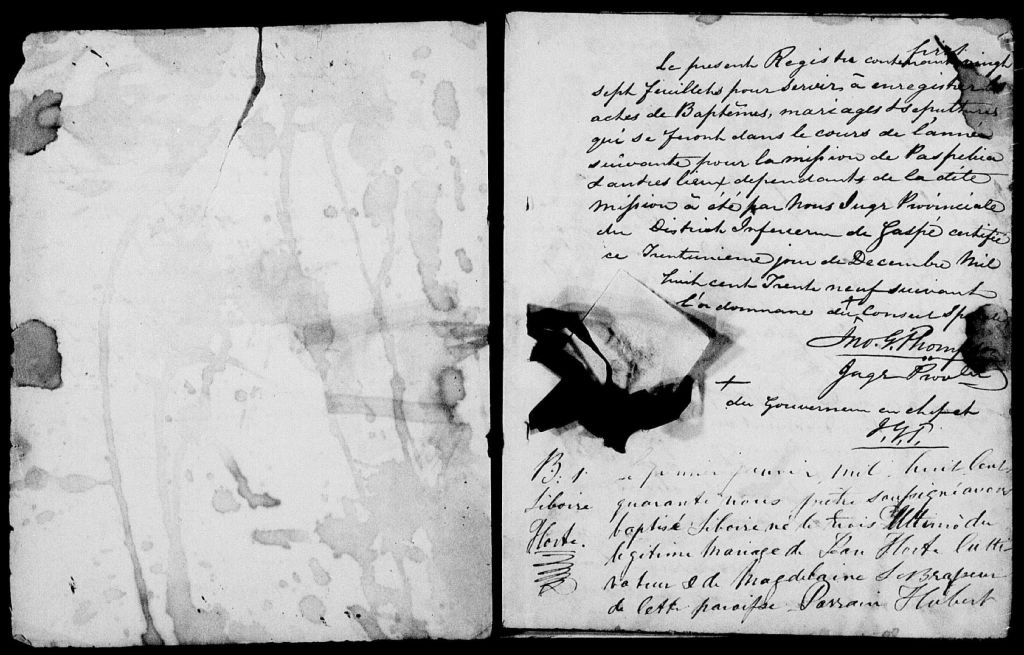 Le present Registre contenant vingt
sept feuillets pour servir à enregistrer les
actes de Baptêmes, mariages & sepultures
qui se feront dans le cours de l'année
suivante pour la mission de Paspebiac
& autres lieux dependants de la dite
mission à été par nous Juge Provinciale
du District Inferieur de Gaspé certifié
ce Trentunieme jour de Decembre Mil
huit cent Trente neuf suivant
l'ordonnance du + Conseil Special
Jno. G. Thompson
Juge Provl
+
du Gouverneur en chef et
J.G.T.
B. 1
Siboire
Horte.
Le premier janvier, mil huit cent
quarante nous prêtre soussigné avons
baptisé Siboire né le trois Ultimo du
legitime mariage de Jean Horte Culti-
vateur & de Magdelaine LeBrasseur
de cette paroisse. Parrain Hubert